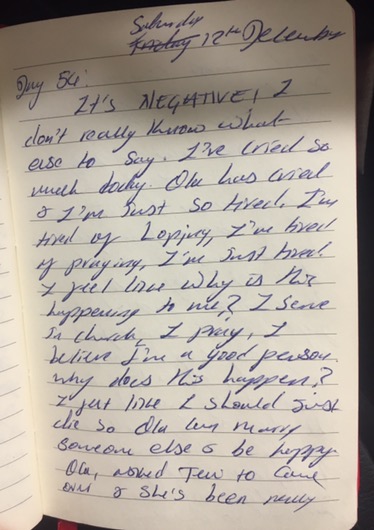 Saturday
Friday 12th December
Day 54:
It's NEGATIVE! I
don't really know what
else to say. I've cried so
much today. Ola has cried
& I'm just so tired. I'm
tired of hoping, I'm tired
of praying, I'm just tired.
I feel like why is this
happening to me? I serve
in church, I pray, I
believe I'm a good person.
why does this happen?
I feel like I should just
die so Ola can marry
someone else & be happy.
Ola, asked to come
over & she's been really